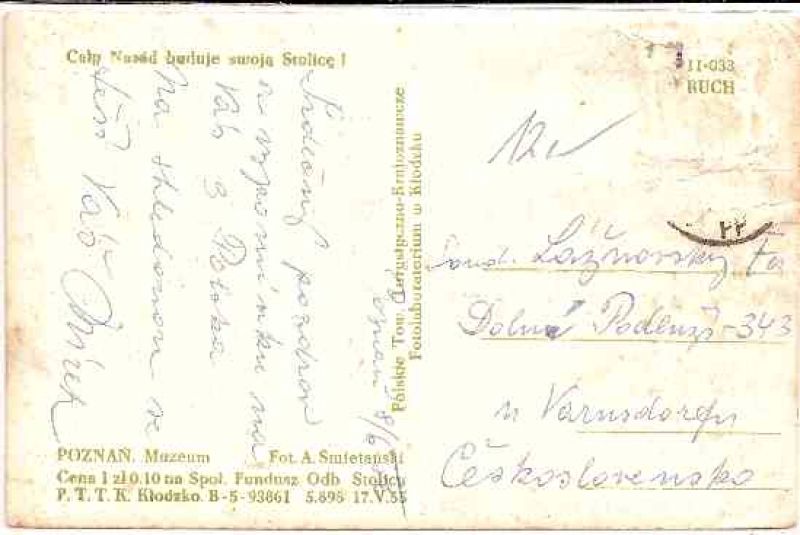 Cały Naród buduje swoją Stolicę !
II-033
RUCH
Polskie Tow. Turystyczno-Krajoznawcze
Fotolaboratorium w Kłodzku
Srdečný pozdrav
a vzpomínku na
Vás z Polska
Na shledanou se
těší Váš Mirek
soud. Lažnovský
Dolní Podluží-343
u Varnsdorfu
Československo
POZNAŃ. Muzeum Fot. A. Śmietański
Cena 1 zł 0.10 na Społ. Fundusz Odb Stolicy
P. T. T. K. Kłodzko. B-5-93861 5.898 17.V.55